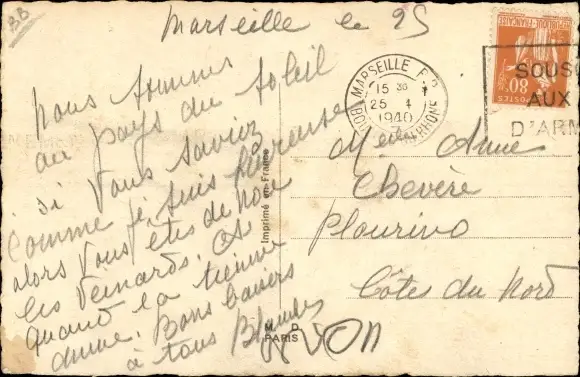 BB
Marseille le 25
nous sommes
au pays du soleil
si vous saviez
comme je suis heureuse
alors vous êtes de
les veinards.
quand la tienne
Anne. Bons baisers
à tous
Imprimé en France
M. D.
PARIS
MARSEILLE
15 30
25 1
1940
BOUCHES DU RHONE
REPUBLIQUE FRANÇAISE
POSTES
80c
SOUS
AUX
D'ARM
Melle Anne
Chevère
Plourivo
Côtes du Nord